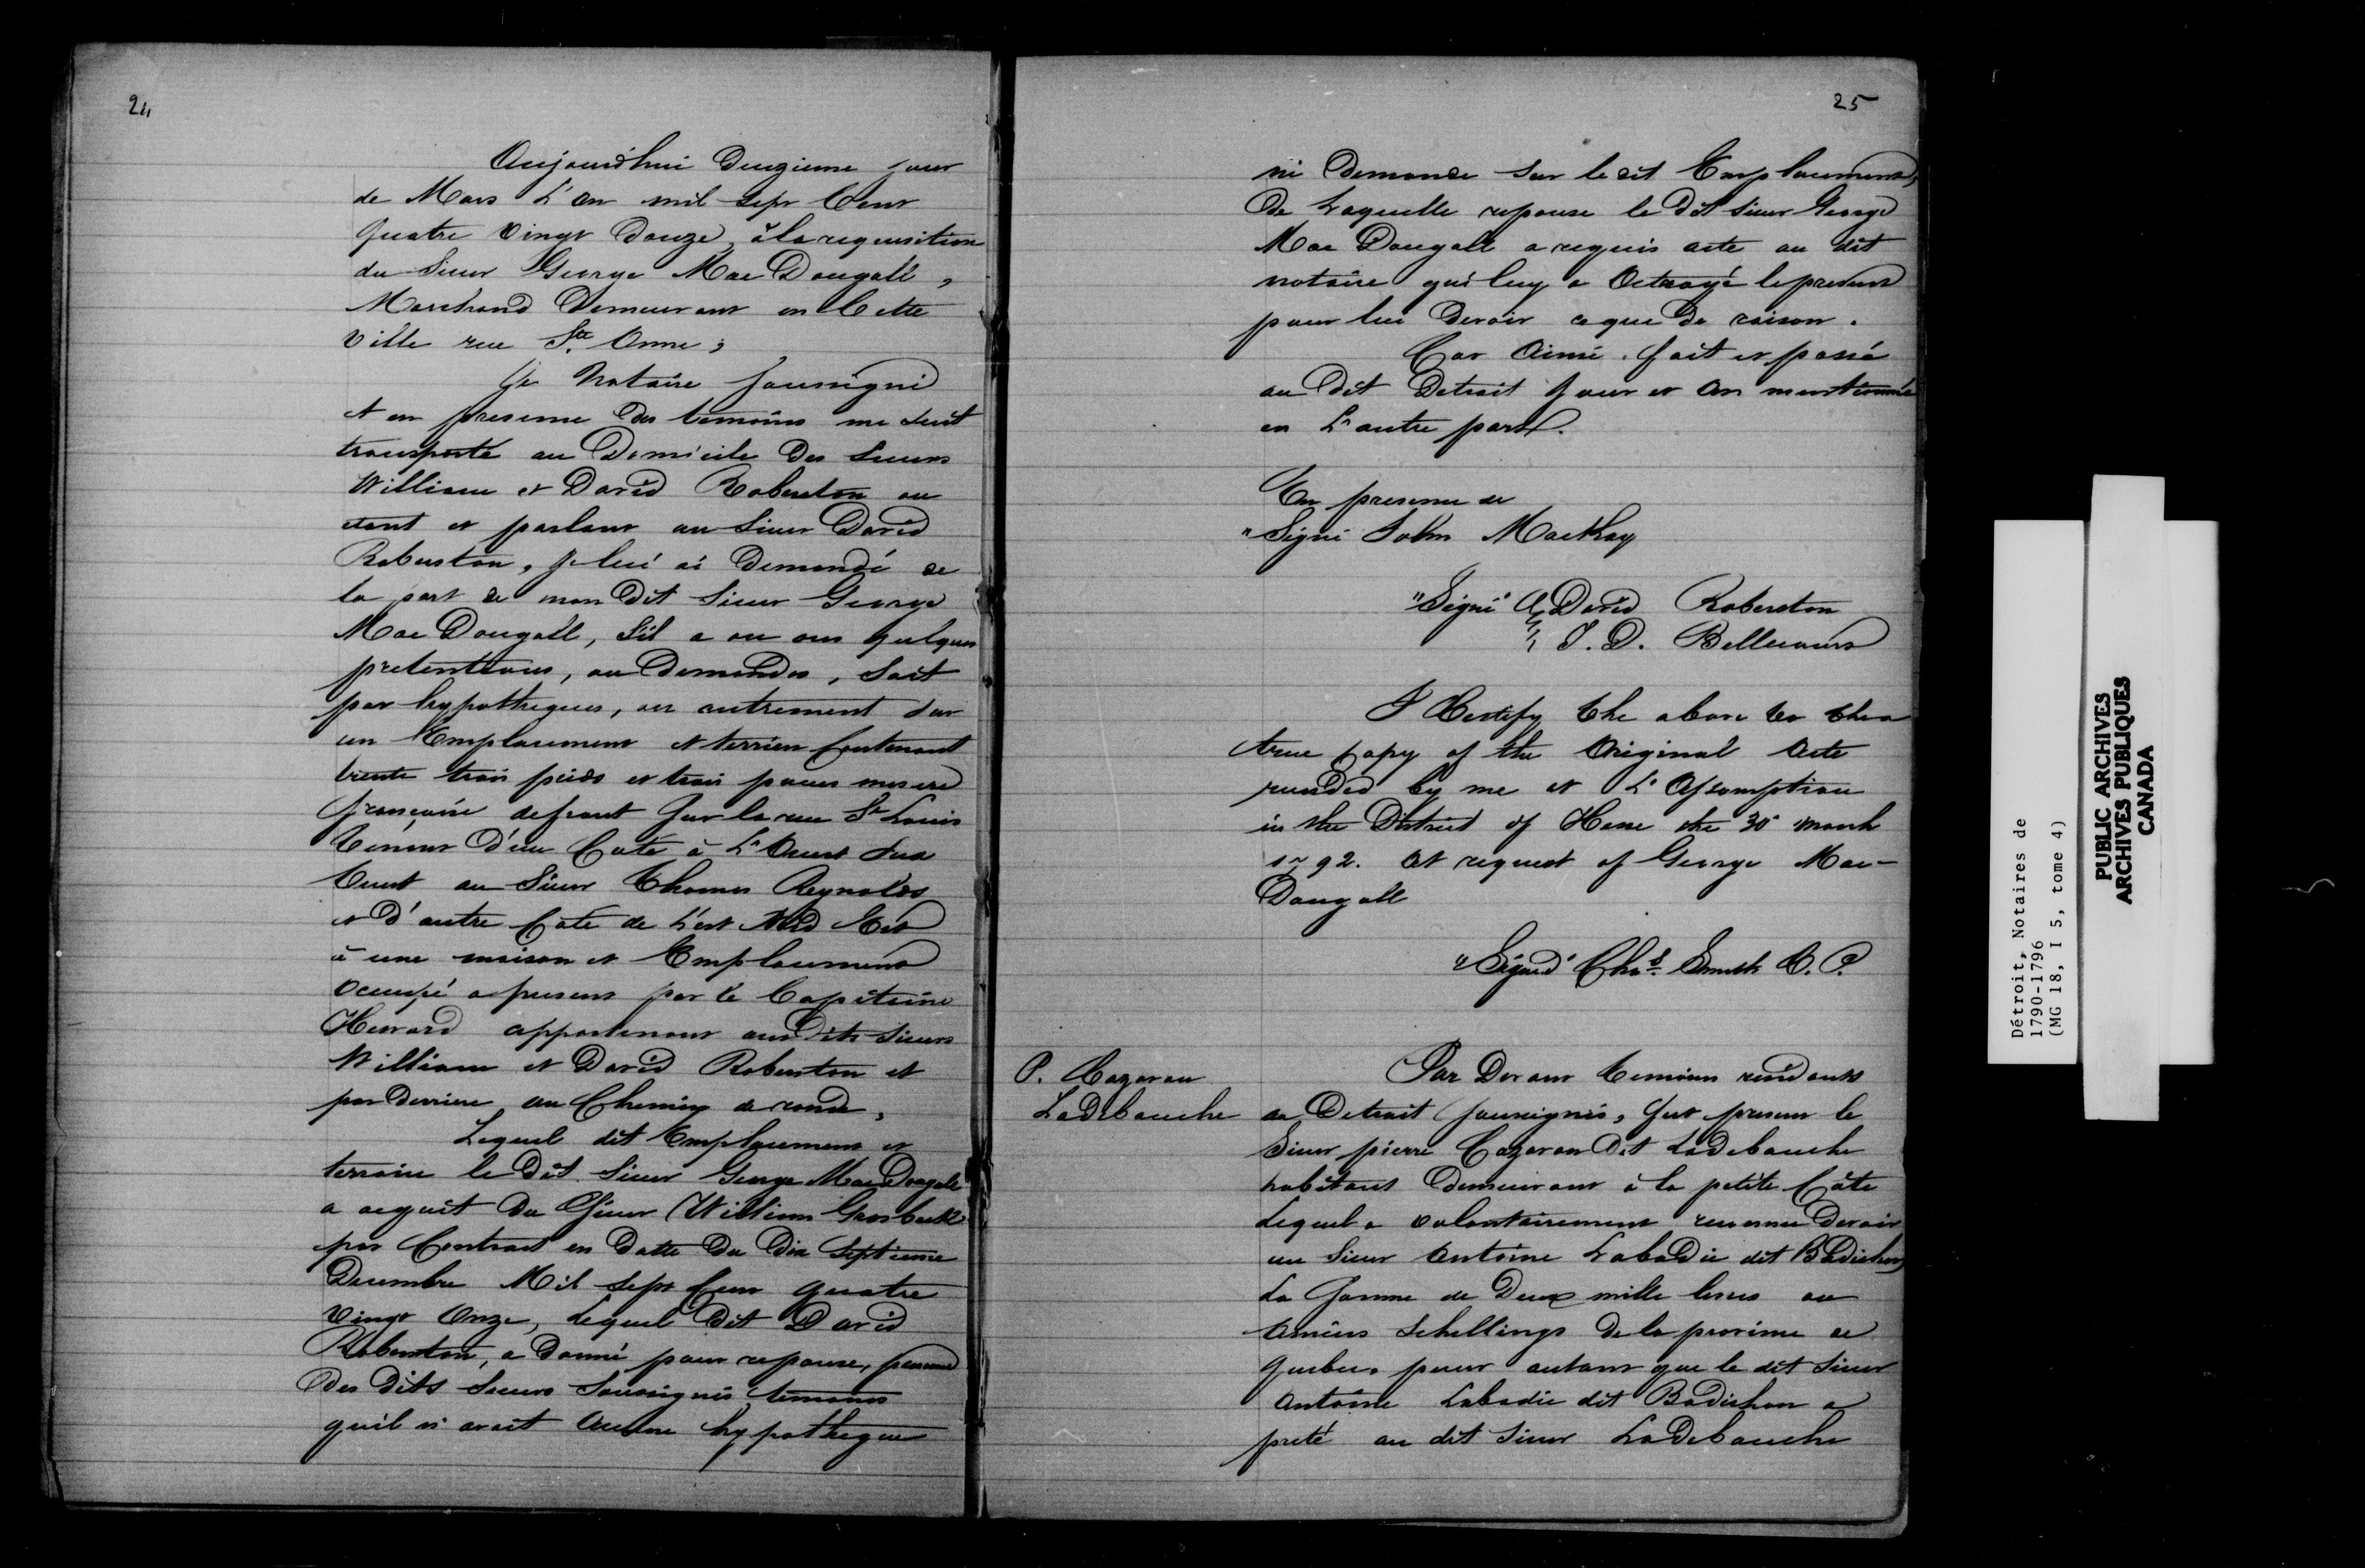 24
Aujourd'hui Deuzieme jour
de Mars L'an mil Sept Cent
quatre Vingt Douze, à la requisition
du Sieur George Mac Dougall,
Marchand Demeurant en Cette
Ville rue Ste Anne;
Je Notaire soussigné
et en presence des temoins me suit
transporté au Domicile des Sieurs
William et David Roberston ou
etant et parlant au Sieur David
Roberston, je lui ai Demandé de
la part de mon Dit Sieur George
Mac Dougall, S'il a ou ons quelques
pretentions, ou Demandes, Soit
par hypotheques, ou autrement sur
un Emplacement et terrien Contenant
trente trois pieds et trois pouces mesure
françaire de front sur la rue St Louis
tenant D'un Coté à L'Ouest sud
Ouest au Sieur Thomas Reynolds
et D'autre Coté de L'est Nord Est
à une maison et Emplacement
Occupé a present par le Capitaine
Heward appartenant aux Dits Sieurs
William et David Roberston et
par Derriere au Chemin de ronde,
Lequel dit Emplacement et
terrain le Dit Sieur George Mac Dougall
a acquit Du Sieur William Groesbeck
par Contract en Datte Du Dix Septieme
Decembre Mil Sept Cent quatre
Vingt Onze, Lequel Dit David
Roberston, a Donné pour reponse, presence
des Dits Sieurs Soussignés temoins
quil n'avait Aucune hypotheque
25
ni Demande Sur le dit Emplacement,
De Laquelle reponse le Dit Sieur George
Mac Dougall a requis acte au dit
notaire qui luy a Octroyé le present
pour lui Devoir ce que De raison.
Car Ainsi fait et passé
au Dit Detroit Jour et An mentionné
en L'autre part.
En presence de
"Signé John MacKay
"Signé" David Roberston
T. D. Bellecours
I Certify the above to the a
true Copy of the Original Acte
passed by me at L'Assomption
in the District of Hesse the 30 March
1792. At request of George Mac-
Dougall
"Signed" Chas. Smith C. P.
P. Cazavan
LaDebauche
Par Devant temoins residants
au Detroit Soussignés, fut present le
Sieur pierre Cazavan Dit LaDebauche
habitant Demeurant à la petite Côte
Lequel a volontairement reconnu Devoir
au Sieur Antoine LabaDie dit BaDichon
La Somme de Deux mille livres ou
Schellings De la province de
quebec pour autant que le dit Sieur
Antoine Labadie dit BaDichon a
preté au dit Sieur LaDebauche
Détroit, Notaires de
1790-1796
(MG 18, I 5, tome 4)
PUBLIC ARCHIVES
ARCHIVES PUBLIQUES
CANADA